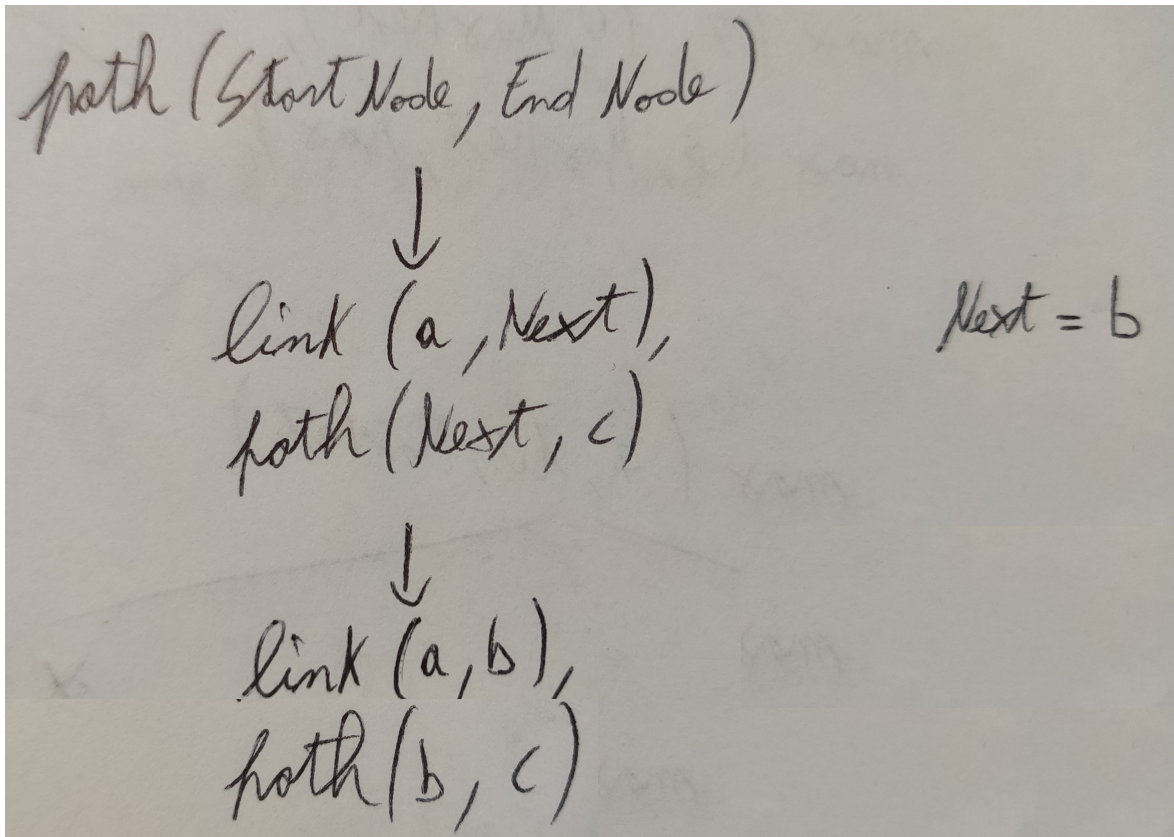 path (Start Node, End Node)
↓
link (a, Next),
Next = b
path (Next, c)
↓
link (a, b),
path (b, c)